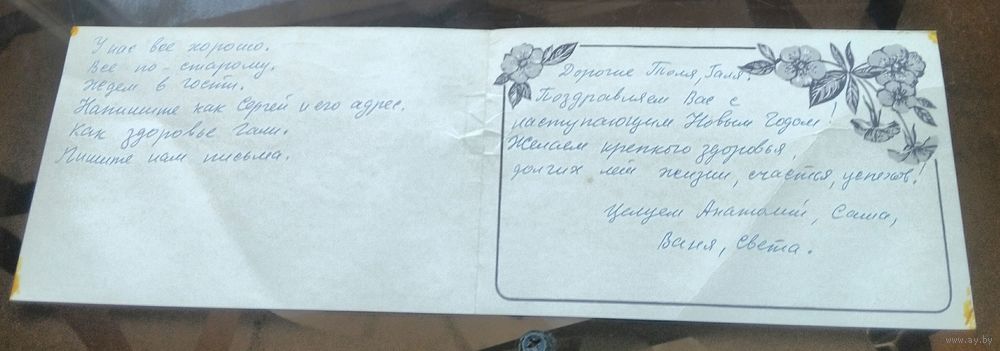 У нас все хорошо.
Все по-старому.
Ждем в гости.
Напишите как Сергей и его адрес.
Как здоровье Гали.
Пишите нам письма.
Дорогие Толя, Галя!
Поздравляем Вас с
наступающим Новым Годом!
Желаем крепкого здоровья,
долгих лет жизни, счастья, успехов!
Целуем Анатолий, Саша,
Ваня, Света.
www.ay.by